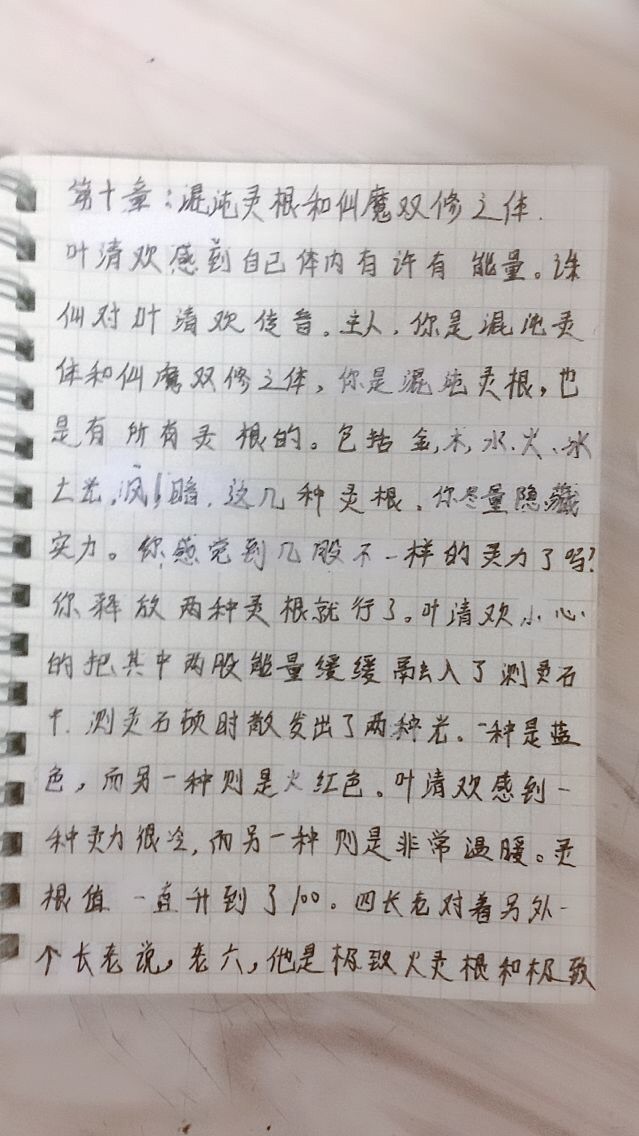 第十章：混沌灵根和仙魔双修之体.
叶清欢感到自己体内有许有能量。诛
仙对叶清欢传音。主人，你是混沌灵
体和仙魔双修之体，你是混沌灵根，也
是有所有灵根的。包括金,木,水、火、冰
土光,风,暗,这几种灵根。你尽量隐藏
实力。你感觉到几股不一样的灵力了吗?
你释放两种灵根就行了。叶清欢小心
的把其中两股能量缓缓融入了测灵石
中.测灵石顿时散发出了两种光。一种是蓝
色，而另一种则是火红色。叶清欢感到一
种灵力很冷,而另一种则是非常温暖。灵
根值一直升到了100。四长老对着另外一
个长老说，老六，他是极致火灵根和极致